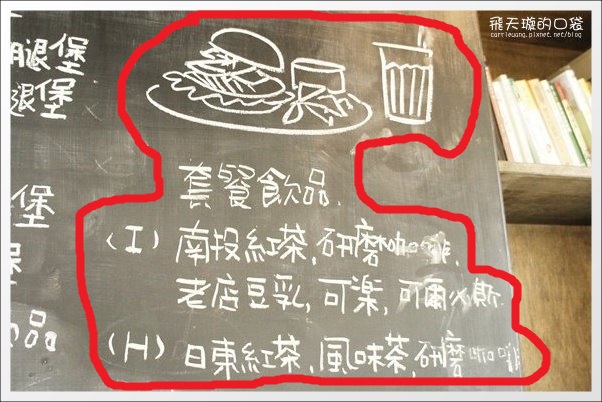 飛天璇的口袋
carrieuang.pixnet.net/blog
腿堡
腿堡
堡
堡
品
套餐飲品.
(I) 南投紅茶, 研磨咖啡,
老店豆乳, 可樂, 可爾必斯.
(H) 日東紅茶, 風味茶, 研磨咖啡